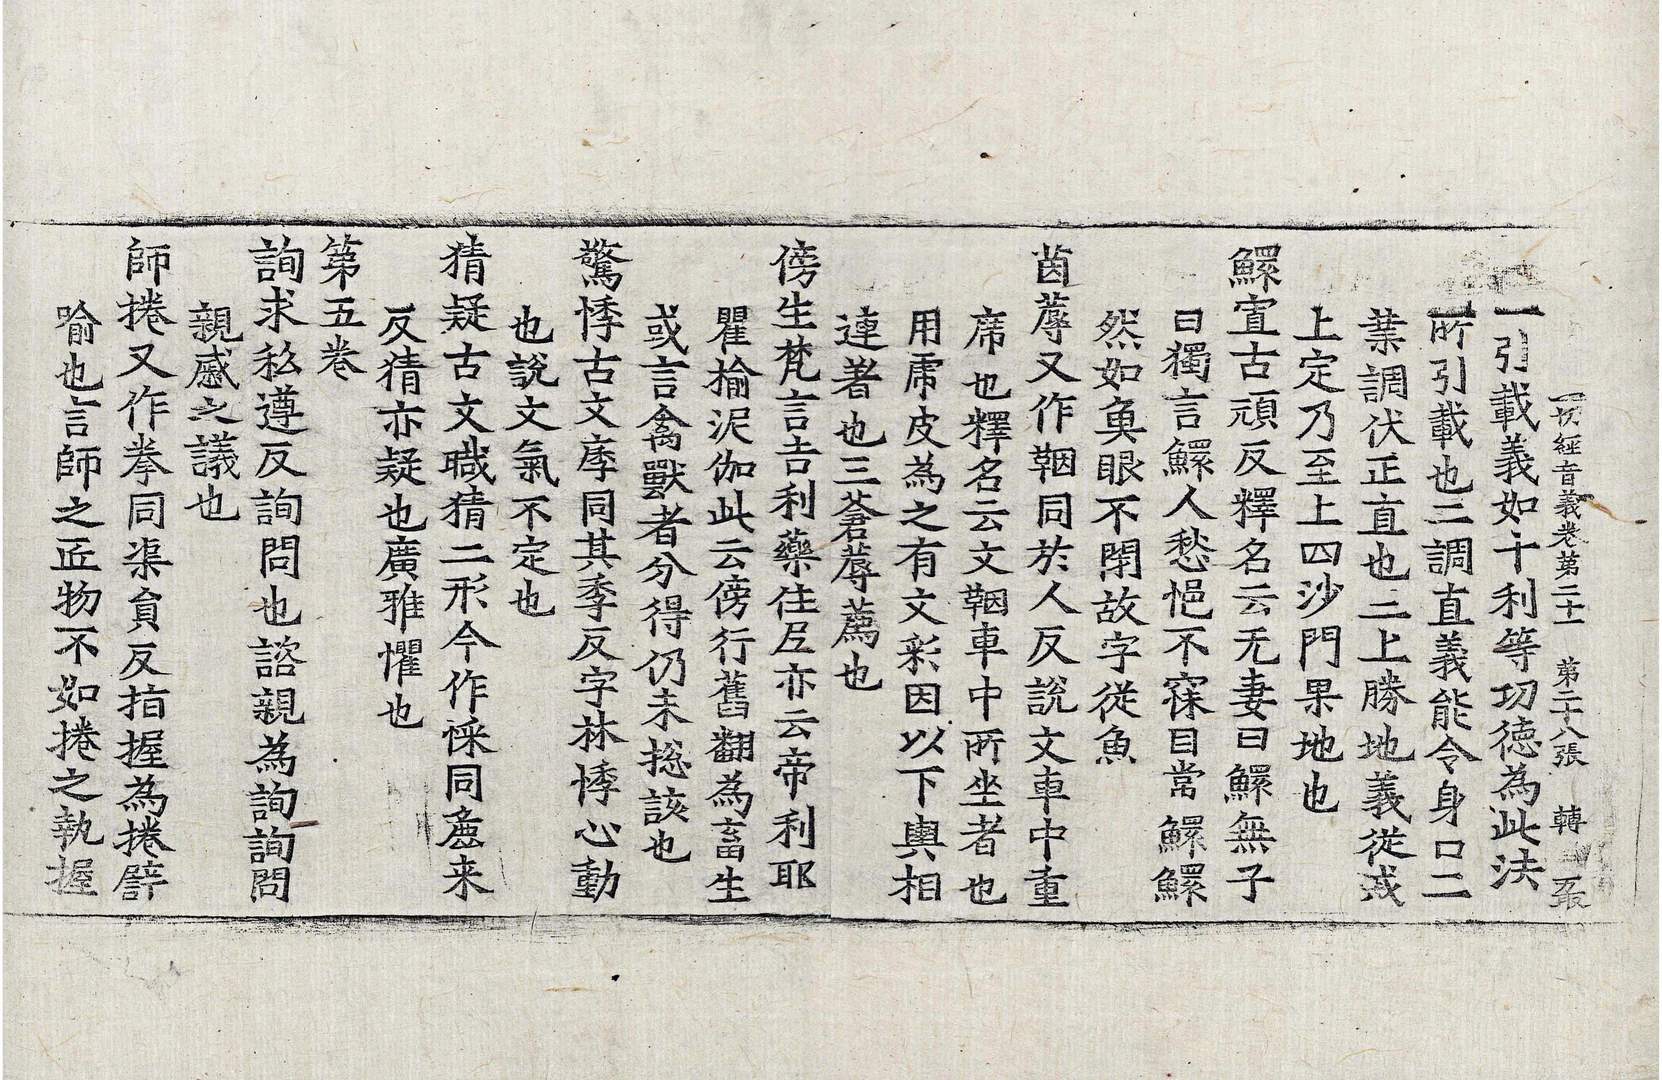 一切經音義卷第二十一　第二十八張　轉
一引載義如十利等功德為此法
所引載也三調直義能令身口二
業調伏正直也二上勝地義從戒
上定乃至上四沙門果地也
鰥寡古頑反釋名云无妻曰鰥無子
曰獨言鰥人愁悒不寐目常鰥鰥
然如魚眼不閉故字從魚
茵蓐又作鞇同於人反說文車中重
席也釋名云文鞇車中所坐者也
用虎皮為之有文彩因以下輿相
連著也三蒼蓐薦也
傍生梵言吉利藥住尼亦云帝利耶
瞿榆泥伽此云傍行舊翻為畜生
或言禽獸者分得仍未揔該也
驚悸古文痵同其季反字林悸心動
也說文氣不定也
猜疑古文䐈猜二形今作㥒同麁来
反猜亦疑也廣雅懼也
第五卷
詢求私遵反詢問也諮親為詢詢問
親戚之議也
師捲又作拳同渠負反指握為捲譬
喻也言師之匠物不如捲之執握